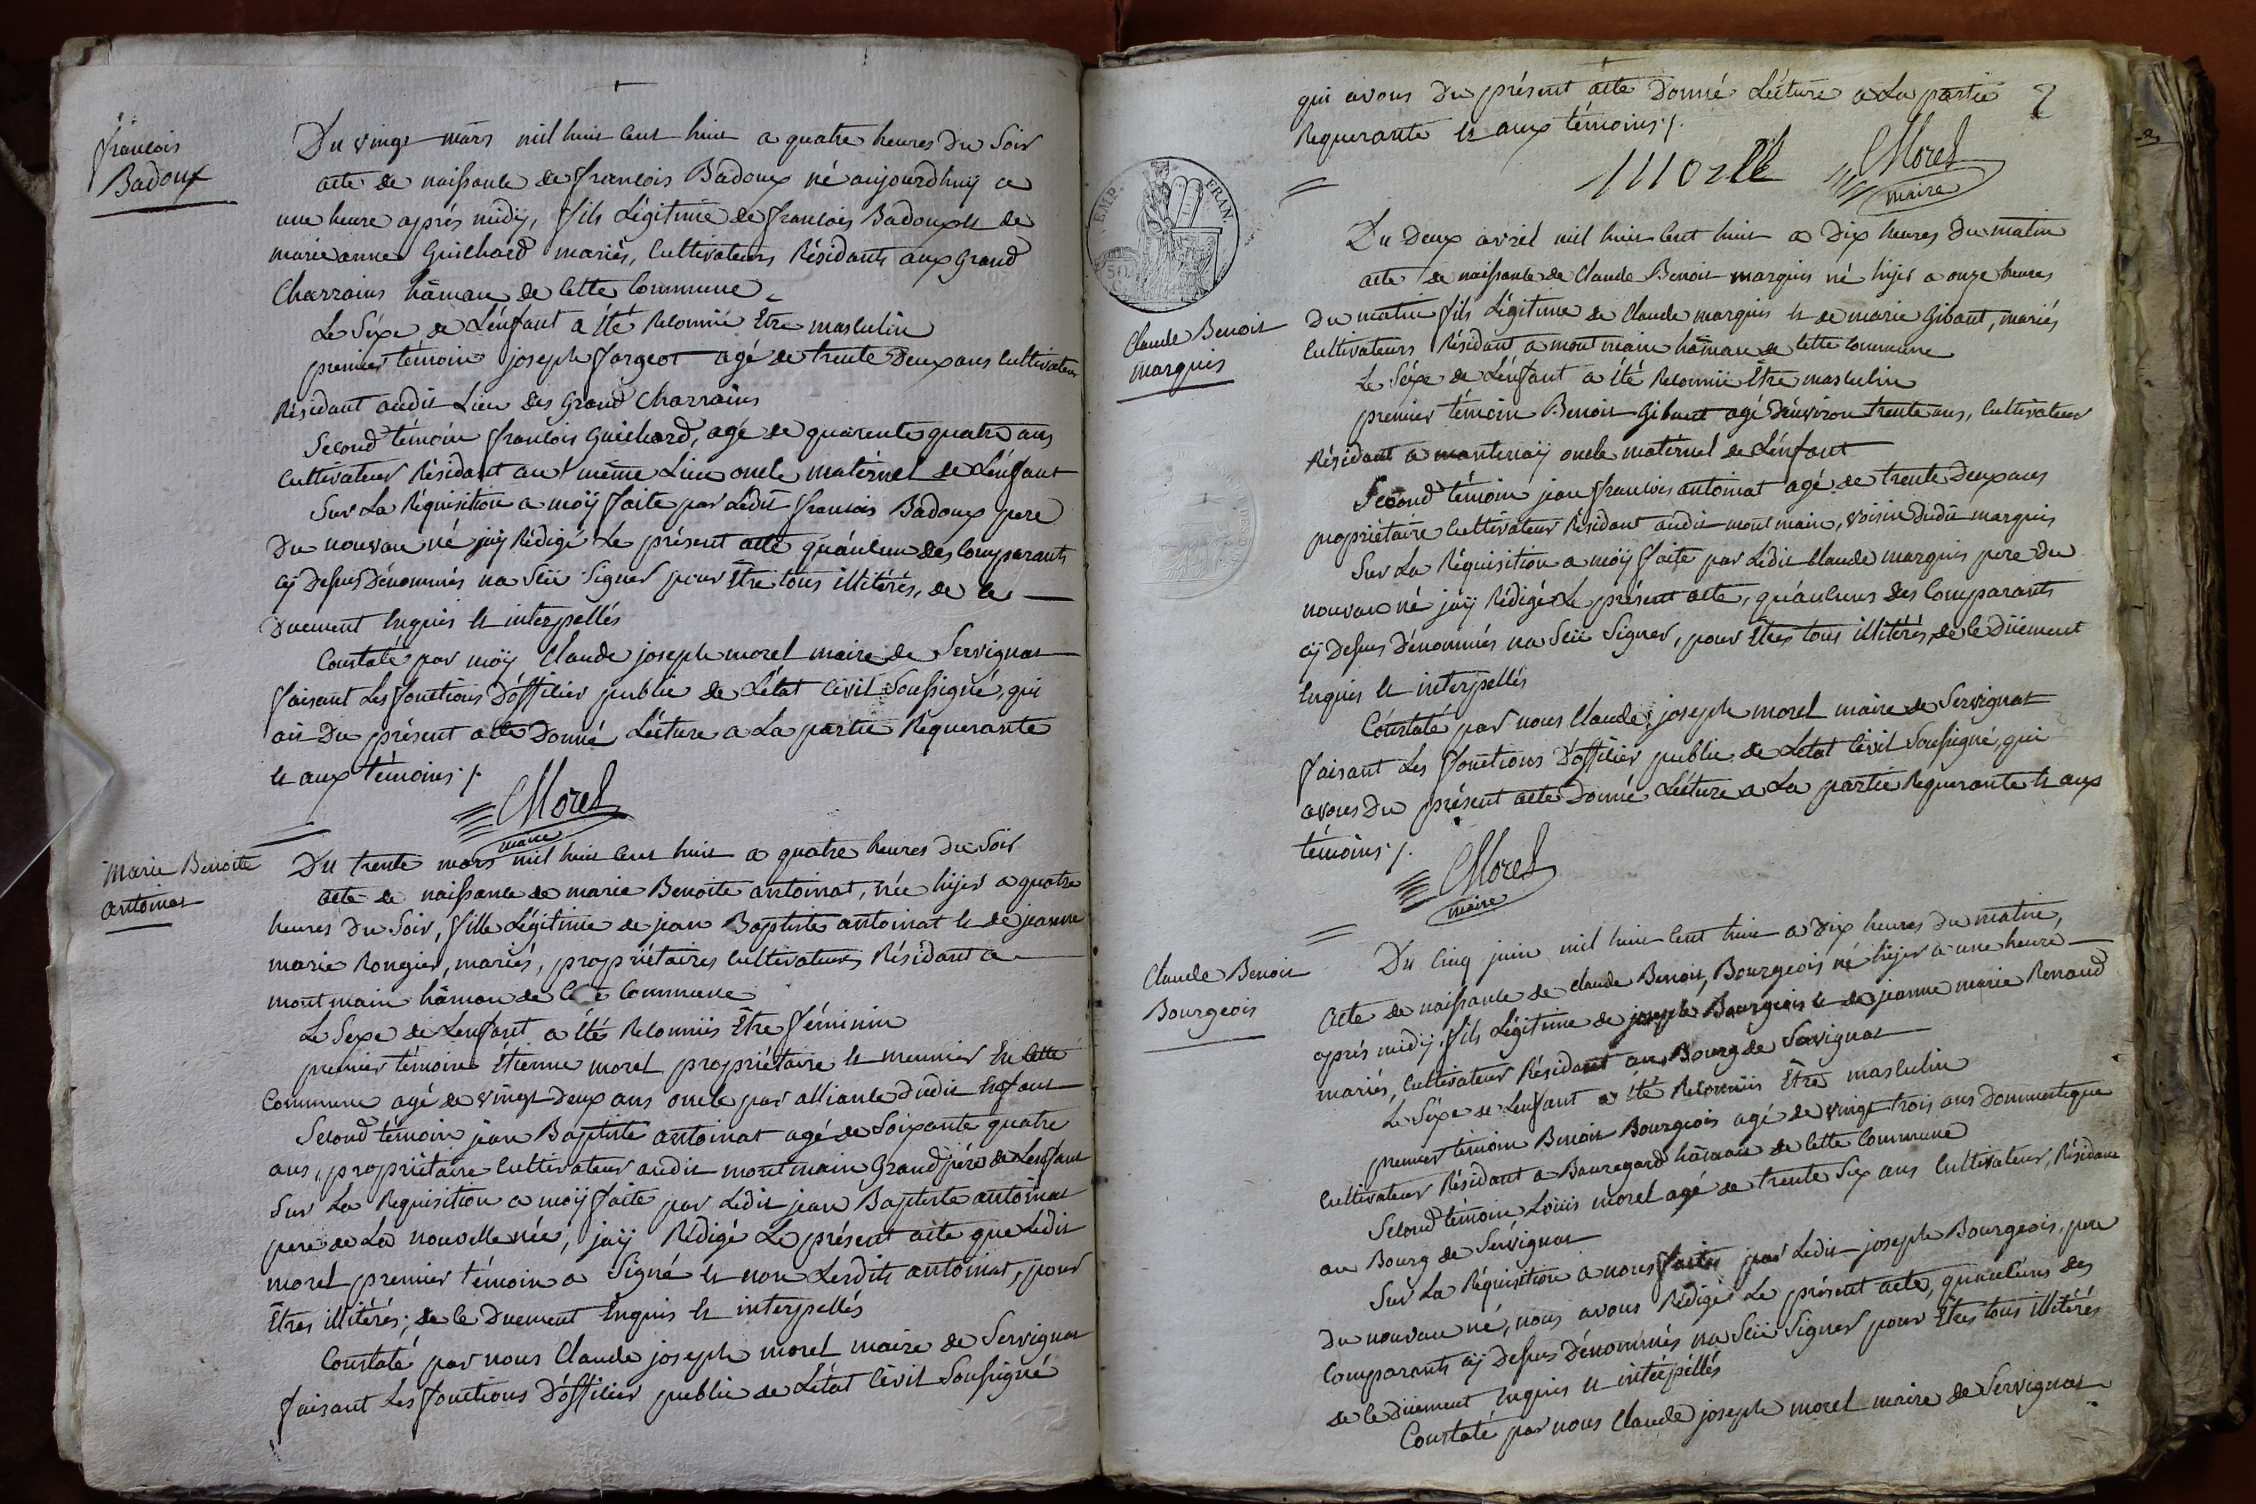 françois
Badoux
Du vingt mars mil huit cent huit a quatre heures du soir
acte de naissance de françois Badoux né aujourdhuÿ a
une heure après midÿ, fils légitime de françois Badoux et de
marie anne Guichard mariés, cultivateurs Résidants aux grand
Charrains hâmau de cette commune
Le Séxe de L'énfant a été Reconnüe Etre masculin
premier témoin joseph fargeot agé de trente deux ans cultivateur
Résidant audit Lieu des grand Charrains
Second témoin françois Guichard, agé de quarente quatre ans
cultivateur Résidant au même Lieu oncle matérnel de L'énfant
Sur La Réquisition a moÿ faite par Ledit francois Badoux pere
du nouvau né jaÿ Rédigé Le présent acte qu'áucun des comparants
cÿ dessus dénommés na Sçü Signer pour Être tous illitérés, de ce
duement enquis et interpellés
Constaté par moÿ Claude joseph morel maire de Servignat
faisant Les fonctions D'officier public de L'état civil Soussigné, qui
ai du présent acte Donné Lécture a La partie Requerante
et aux témoins ./.
Morel
maire
Marie Benoite
antoinat
Du trente mars mil huit cent huit a quatre heures du Soir
acte de naissance de marie Benoite antoinat, née hÿer a quatre
heures du Soir, fille Légitime de jean Baptiste antoinat et de jeanne
marie Rongier, mariés, propriétaires cultivateurs Résidant a
montmain hâmau de cette commune
Le Sexe de L'enfant a été Reconnüs Être féminin
premier témoin étienne morel propriétaire et meunier En cette
Commune agé de vingt deux ans oncle par alliance dudit Enfant
Second témoin jean Baptiste antoinat agé de Soixante quatre
ans, propriétaire cultivateur audit montmain Grand père de Lenfant
Sur La Requisition a moÿ faite par Ledit jean Baptiste antoinat
pere de La nouvelle née, jaÿ Rédigé Le présent acte que Ledit
morel premier témoin a Signé et non Lesdits antoinat, pour
Êtres illitérés; de ce Duement Enquis et interpellés
Constaté par nous Claude joseph morel maire de Servignat
faisant Les fonctions D'officier public de L'état Civil Soussigné
qui avons du présent acte Donné Lécture a La partie
Requerante et aux témoins ./.
2
Morel
Morel
maire
EMP. FRAN.
Claude Benoit
marquis
Du Deux avril mil huit cent huit a Dix heures du matin
acte de naissance de Claude Benoit marquis né hÿer a onze heures
du matin fils Légitime de Claude marquis et de marie Gibant, mariés
Cultivateurs Résidant a montmain hâmau de cette commune
Le Séxe de L'énfant a été Reconnüe Être masculin
premier témoin Benoit Gibant agé D'énviron trente ans, cultivateur
Résidant a mantenaÿ oncle matérnel de L'énfant
Second témoin jean francois antoinat agé de trente deux ans
propriétaire cultivateur Résidant audit montmain, voisin dudit marquis
Sur La Réquisition a moÿ faite par Lédit Claude marquis pere du
nouvau né jaÿ Rédigé Le présent acte, qu'áucuns des Comparants
cÿ dessus dénommés na Sçü Signer, pour Etres tous illitérés, de ce düement
Enquis et interpellés
Constaté par nous Claude joseph morel maire de Servignat
faisant Les fonctions D'officier public de L'etat Civil Soussigné, qui
avons du présent acte Donné Lécture a La partie Requerante et aux
témoins ./.
Morel
maire
Claude Benoit
Bourgeois
Du cinq juin mil huit cent huit a Dix heures du matin,
Acte de naissance de Claude Benoit, Bourgeois né hÿer a une heure
après midÿ, fils Légitime de joseph Bourgeois et de jeanne marie Renaud
mariés, Cultivateur Résidant au Bourg de Servignat
Le Séxe de L'enfant a été Reconnüis Être masculin
premier témoin Benoit Bourgeois agé de vingt trois ans Dommestique
Cultivateur Résidant a Bauregard hâmau de cette Commune
Second témoin Loüis morel agé de trente Six ans Cultivateur, Résidant
au Bourg de Servignat
Sur La Réquisition a nous faite par Ledit joseph Bourgeois, pere
du nouvau né, nous avons Rédigé Le présent acte, qu'aucuns des
Comparants cÿ dessus Dénommés na Sçü Signer pour Êtres tous illitérés
de ce düement Enquis et intérpéllés
Constaté par nous Claude joseph morel maire de Servignat